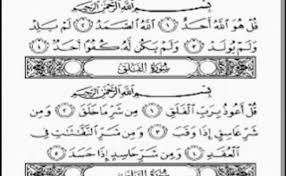 بِسْمِ اللَّهِ الرَّحْمَٰنِ الرَّحِيمِ
قُلْ هُوَ اللَّهُ أَحَدٌ ١ اللَّهُ الصَّمَدُ ٢ لَمْ يَلِدْ
وَلَمْ يُولَدْ ٣ وَلَمْ يَكُن لَّهُ كُفُوًا أَحَدٌ ٤
سُورَةُ الْفَلَقِ
بِسْمِ اللَّهِ الرَّحْمَٰنِ الرَّحِيمِ
قُلْ أَعُوذُ بِرَبِّ الْفَلَقِ ١ مِن شَرِّ مَا خَلَقَ ٢ وَمِن
شَرِّ غَاسِقٍ إِذَا وَقَبَ ٣ وَمِن شَرِّ النَّفَّٰثَٰتِ فِي
الْعُقَدِ ٤ وَمِن شَرِّ حَاسِدٍ إِذَا حَسَدَ ٥
سُورَةُ النَّاسِ